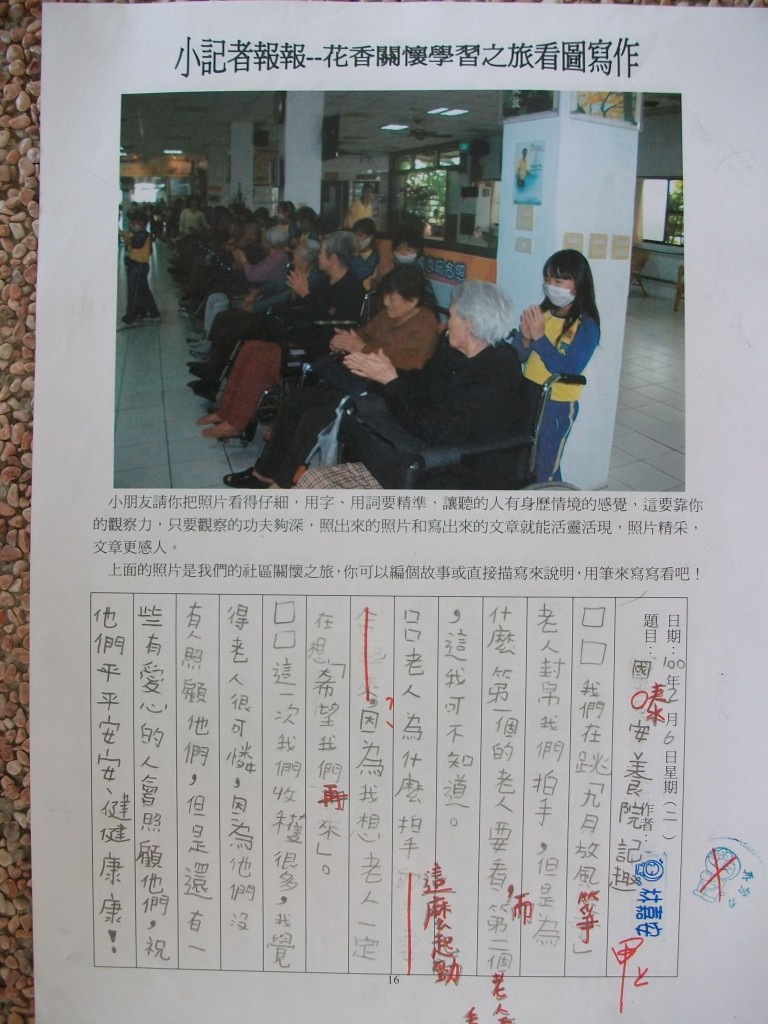 小記者報報--花香關懷學習之旅看圖寫作
小朋友請你把照片看得仔細，用字、用詞要精準，讓聽的人有身歷情境的感覺，這要靠你
的觀察力，只要觀察的功夫夠深，照出來的照片和寫出來的文章就能活靈活現，照片精采，
文章更感人。
上面的照片是我們的社區關懷之旅，你可以編個故事或直接描寫來說明，用筆來寫寫看吧！
日期：100年12月6日星期（二）作者：林嘉安
題目：國泰安養院記趣
口口我們在跳「九月放風箏」
老人封帛我們拍手，但是為
什麼第一個的老人要看，而第二個老人
，這我可不知道。
口口老人為什麼拍手這麼起勁
？因為我想老人一定
在想「希望我們再來」。
口口這一次我們收穫很多，我覺
得老人很可憐，因為他們沒
有人照顧他們，但是還有一
些有愛心的人會照顧他們，祝
他們平平安安、健健康康！
甲上
16